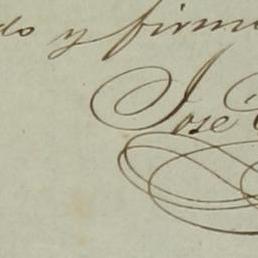 do y firm
Jose